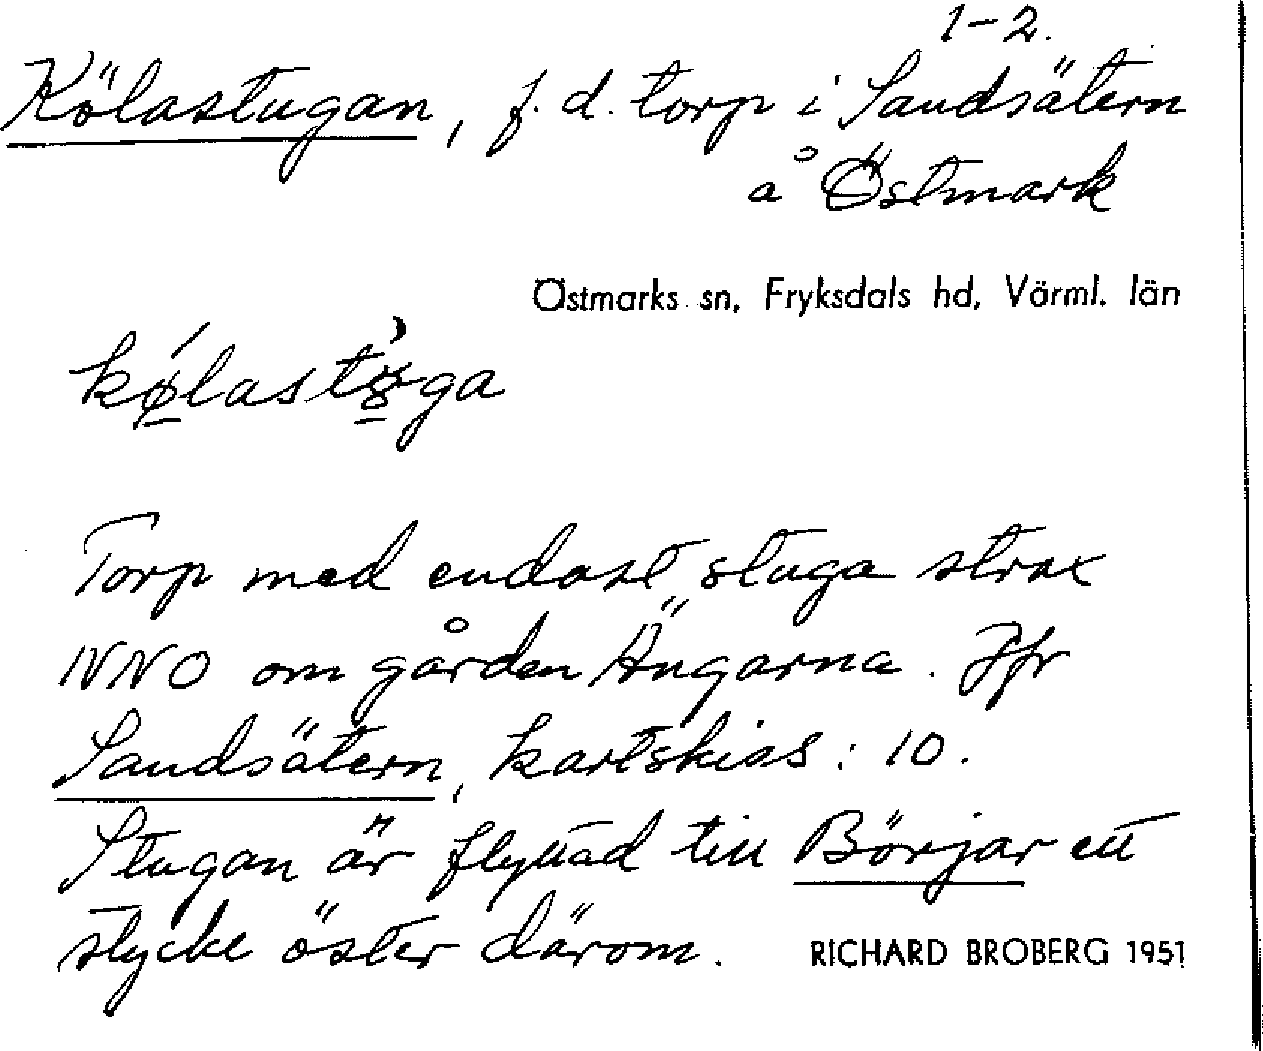 1-2.
Kölastugan, f. d. torp i Sandsätern
å Östmark
Östmarks sn, Fryksdals hd, Värml. län
kǿ̱lastɤ̱̀ga
Torp med endast stuga strax
NNO om gården Ängarna. Jfr
Sandsätern, kartskiss: 10.
Stugan är flyttad till Börjar ett
stycke öster därom.
RICHARD BROBERG 1951